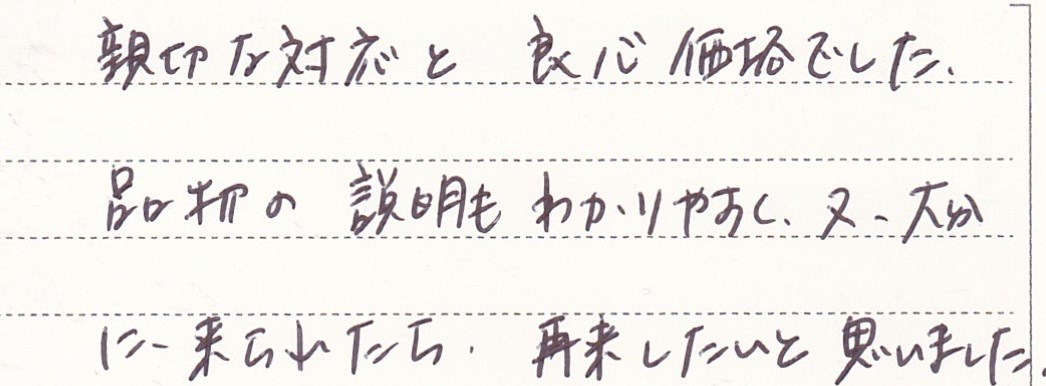 親切な対応と 良心価格でした、
品物の 説明も わかりやすく、又、大分
に来られたら、再来したいと 思いました.